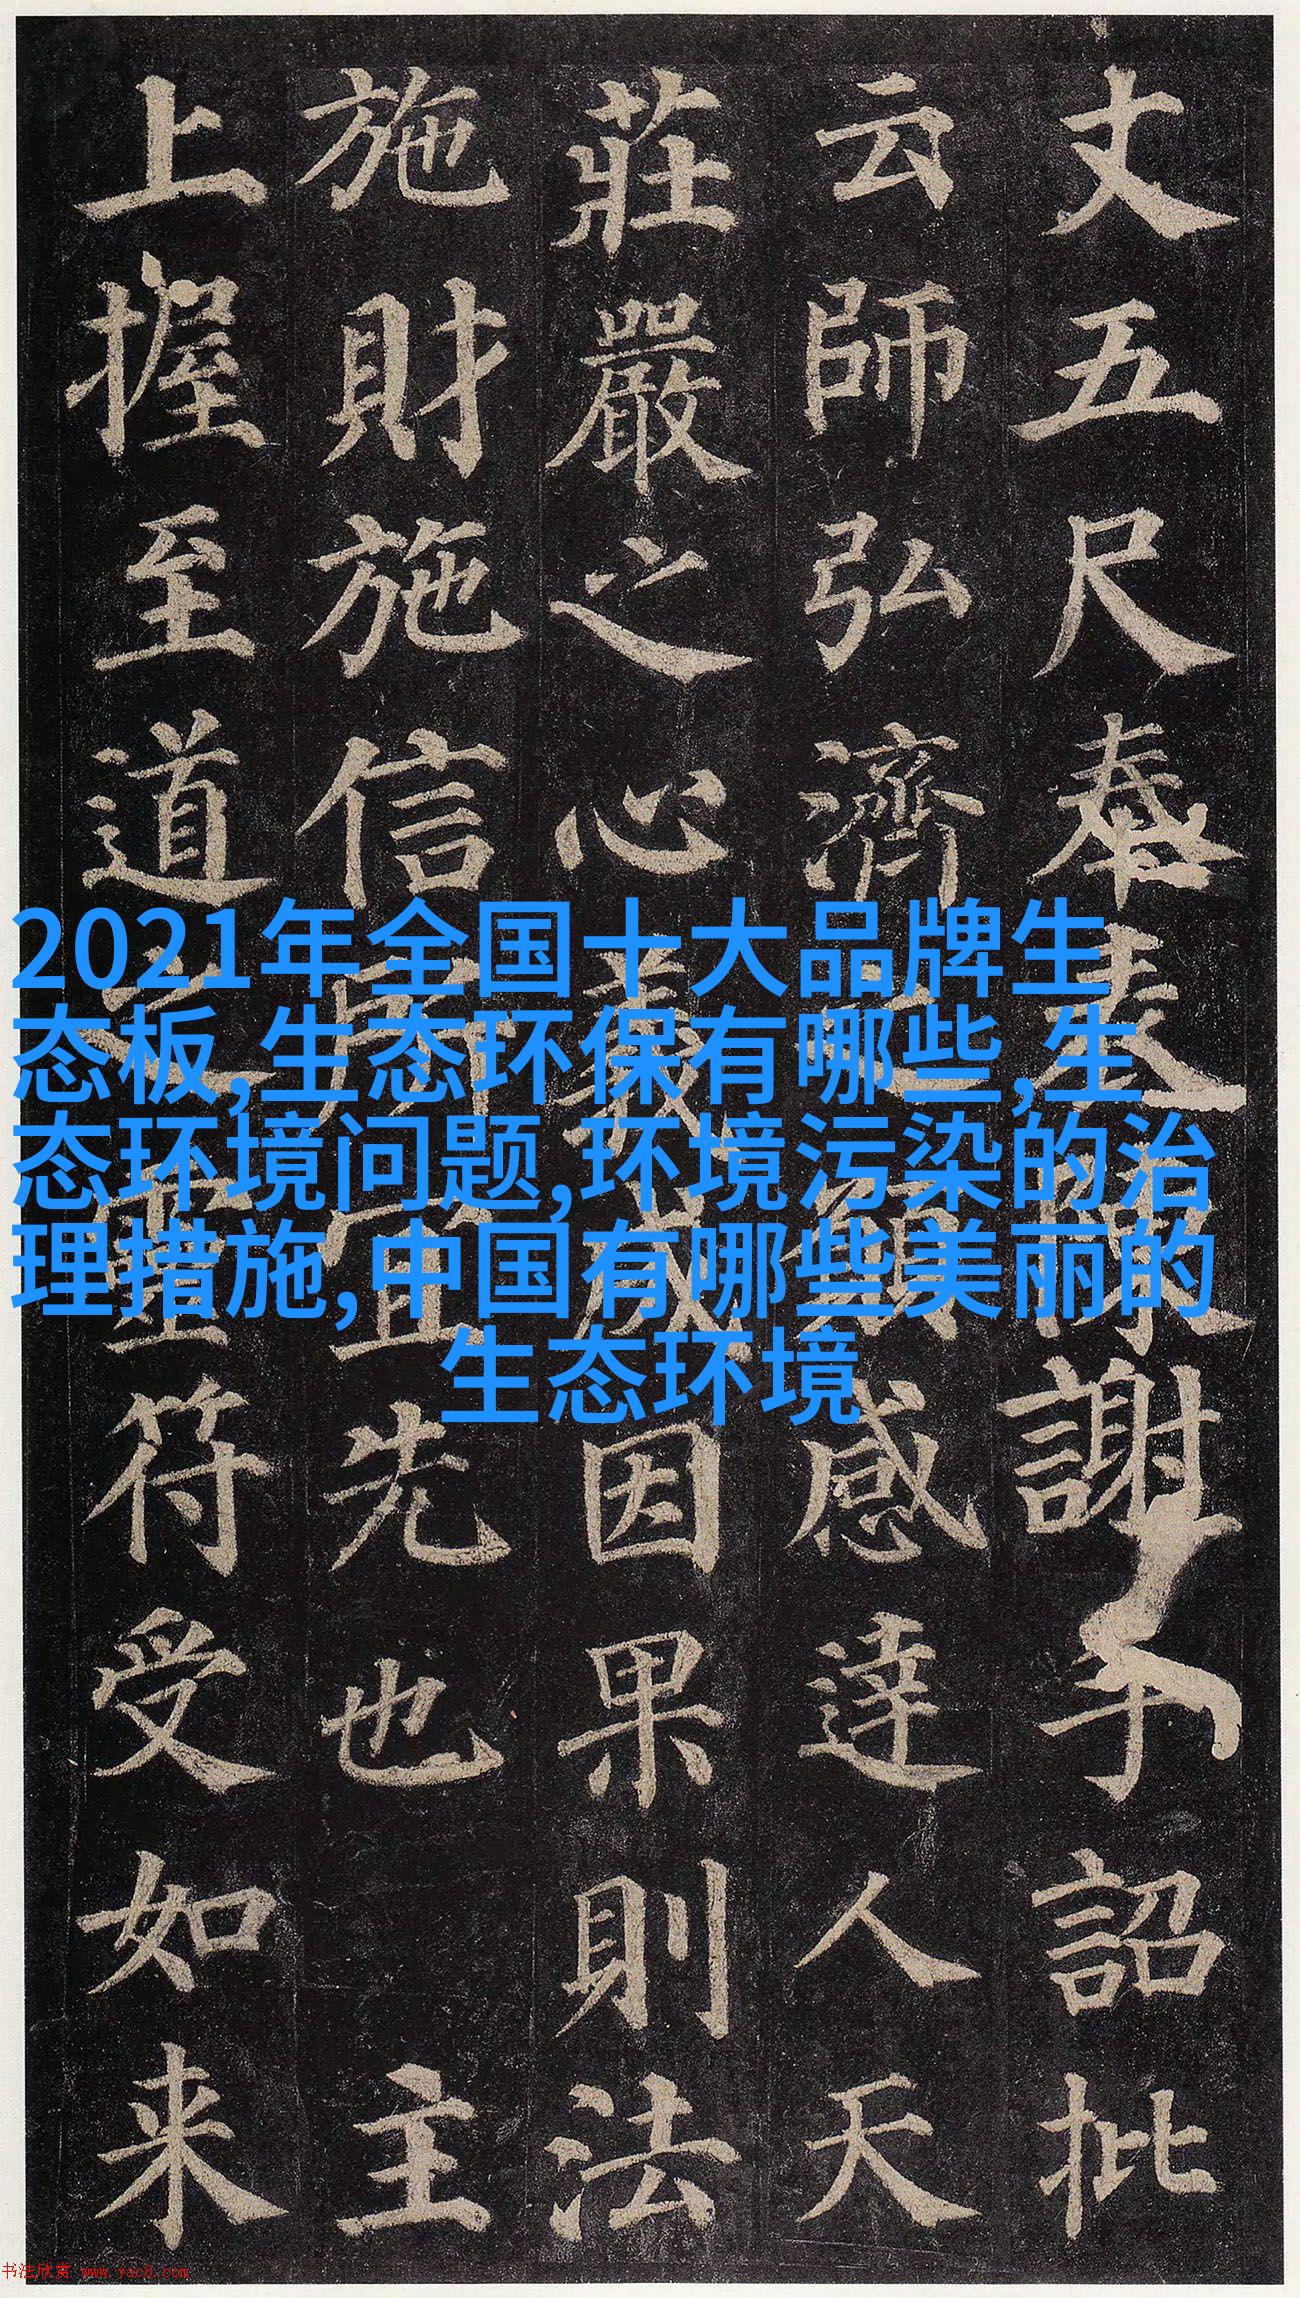 丈五尺奉表陳謝手詔批
云師弘濟之願感達人天
莊嚴之心義成因果則法
施財施信所宜先也 主
上握至道之靈符受如来
2021年全国十大品牌生
态板,生态环保有哪些,生
态环境问题,环境污染的治
理措施,中国有哪些美丽的
生态环境
书法欣赏 www.yac8.com